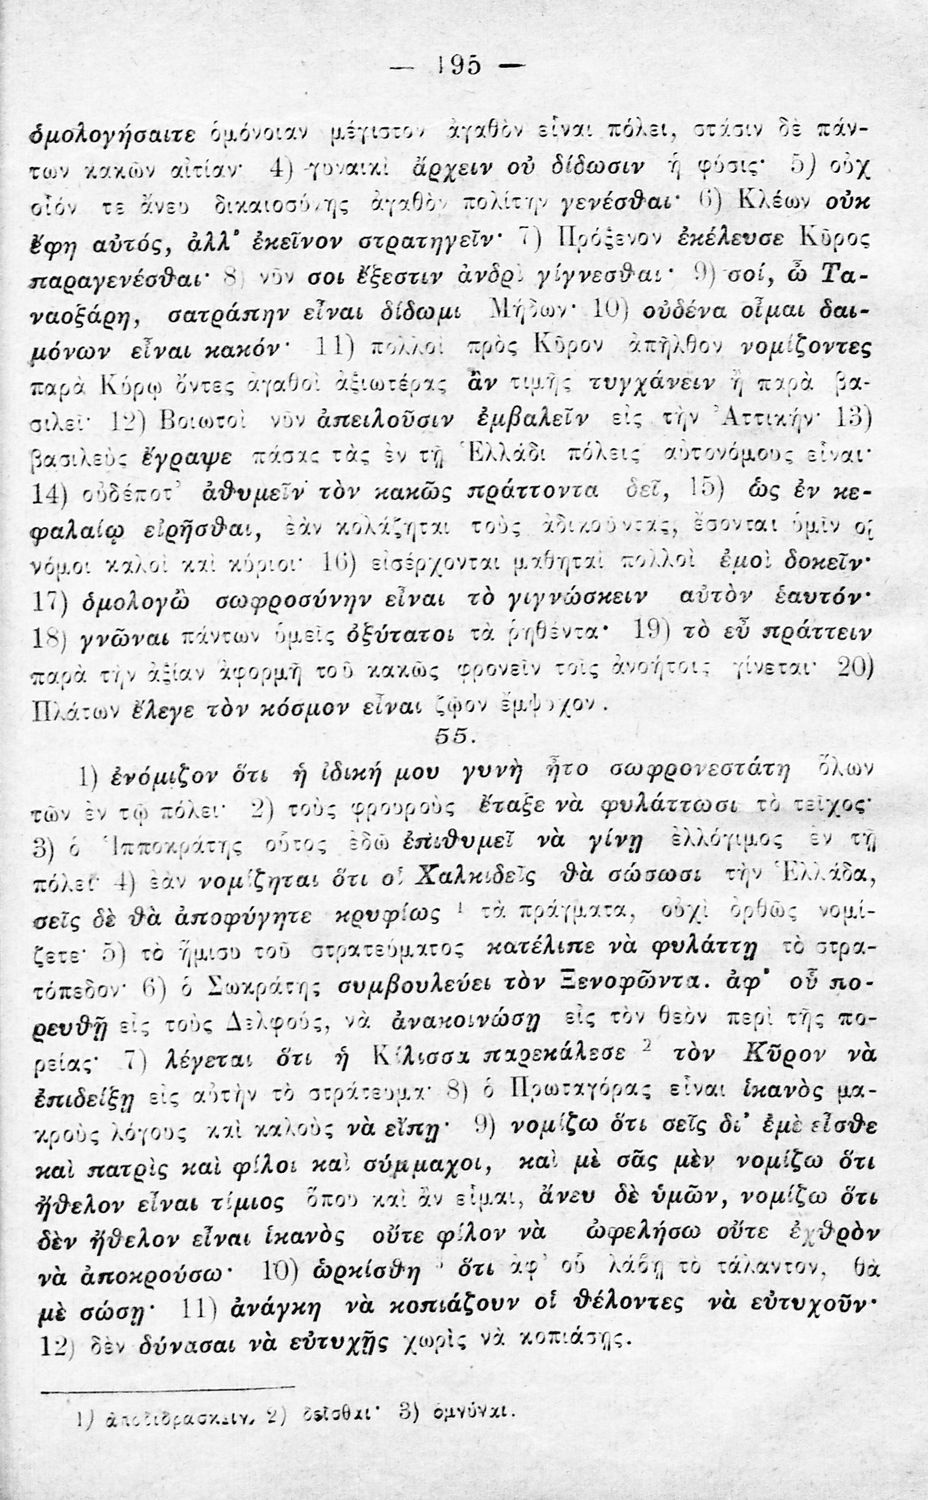 — 195 —
ὁμολογήσαιτε ὁμόνοιαν μέγιστον ἀγαθὸν εἶναι πόλει, στάσιν δὲ πάν-
των κακῶν αἰτίαν· 4) γυναικὶ ἄρχειν οὐ δίδωσιν ἡ φύσις· 5) οὐχ
οἷόν τε ἄνευ δικαιοσύνης ἀγαθὸν πολίτην γενέσθαι· 6) Κλέων οὐκ
ἔφη αὐτός, ἀλλ' ἐκεῖνον στρατηγεῖν· 7) Πρόξενον ἐκέλευσε Κῦρος
παραγενέσθαι· 8) νῦν σοι ἔξεστιν ἀνδρὶ γίγνεσθαι· 9) σοί, ὦ Τα-
ναοξάρη, σατράπην εἶναι δίδωμι Μήδων· 10) οὐδένα οἶμαι δαι-
μόνων εἶναι κακόν· 11) πολλοὶ πρὸς Κῦρον ἀπῆλθον νομίζοντες
παρὰ Κύρῳ ὄντες ἀγαθοὶ ἀξιωτέρας ἂν τιμῆς τυγχάνειν ἢ παρὰ βα-
σιλεῖ· 12) Βοιωτοὶ νῦν ἀπειλοῦσιν ἐμβαλεῖν εἰς τὴν Ἀττικήν· 13)
βασιλεὺς ἔγραψε πάσας τὰς ἐν τῇ Ἑλλάδι πόλεις αὐτονόμους εἶναι·
14) οὐδέποτ' ἀθυμεῖν τὸν κακῶς πράττοντα δεῖ, 15) ὡς ἐν κε-
φαλαίῳ εἰρῆσθαι, ἐὰν κολάζηται τοὺς ἀδικοῦντας, ἔσονται ὑμῖν οἱ
νόμοι καλοὶ καὶ κύριοι· 16) εἰσέρχονται μαθηταὶ πολλοὶ ἐμοὶ δοκεῖν·
17) ὁμολογῶ σωφροσύνην εἶναι τὸ γιγνώσκειν αὐτὸν ἑαυτόν·
18) γνῶναι πάντων ὑμεῖς ὀξύτατοι τὰ ῥηθέντα· 19) τὸ εὖ πράττειν
παρὰ τὴν ἀξίαν ἀφορμὴ τοῦ κακῶς φρονεῖν τοῖς ἀνοήτοις γίνεται· 20)
Πλάτων ἔλεγε τὸν κόσμον εἶναι ζῷον ἔμψυχον.
55.
1) ἐνόμιζον ὅτι ἡ ἰδική μου γυνὴ ἦτο σωφρονεστάτη ὅλων
τῶν ἐν τῷ πόλει· 2) τοὺς φρουροὺς ἔταξε νὰ φυλάττωσι τὸ τεῖχος·
3) ὁ Ἱπποκράτης οὗτος ἐδῶ ἐπιθυμεῖ νὰ γίνῃ ἐλλόγιμος ἐν τῇ
πόλει· 4) ἐὰν νομίζηται ὅτι οἱ Χαλκιδεῖς θὰ σώσωσι τὴν Ἑλλάδα,
σεῖς δὲ θὰ ἀποφύγητε κρυφίως ¹ τὰ πράγματα, οὐχὶ ὀρθῶς νομί-
ζετε· 5) τὸ ἥμισυ τοῦ στρατεύματος κατέλιπε νὰ φυλάττῃ τὸ στρα-
τόπεδον· 6) ὁ Σωκράτης συμβουλεύει τὸν Ξενοφῶντα. ἀφ' οὗ πο-
ρευθῇ εἰς τοὺς Δελφούς, νὰ ἀνακοινώσῃ εἰς τὸν θεὸν περὶ τῆς πο-
ρείας· 7) λέγεται ὅτι ἡ Κίλισσα παρεκάλεσε ² τὸν Κῦρον νὰ
ἐπιδείξῃ εἰς αὐτὴν τὸ στράτευμα· 8) ὁ Πρωταγόρας εἶναι ἱκανὸς μα-
κροὺς λόγους καὶ καλοὺς νὰ εἴπῃ· 9) νομίζω ὅτι σεῖς δι' ἐμὲ εἶσθε
καὶ πατρὶς καὶ φίλοι καὶ σύμμαχοι, καὶ μὲ σᾶς μὲν νομίζω ὅτι
ἤθελον εἶναι τίμιος ὅπου καὶ ἂν εἶμαι, ἄνευ δὲ ὑμῶν, νομίζω ὅτι
δὲν ἤθελον εἶναι ἱκανὸς οὔτε φίλον νὰ ὠφελήσω οὔτε ἐχθρὸν
νὰ ἀποκρούσω· 10) ὡρκίσθη ³ ὅτι ἀφ' οὗ λάβῃ τὸ τάλαντον, θὰ
μὲ σώσῃ· 11) ἀνάγκη νὰ κοπιάζουν οἱ θέλοντες νὰ εὐτυχοῦν·
12) δὲν δύνασαι νὰ εὐτυχῇς χωρὶς νὰ κοπιάσῃς.
1) ἀποδιδρασκειν, 2) δεῖσθαι· 3) ὀμνύναι.